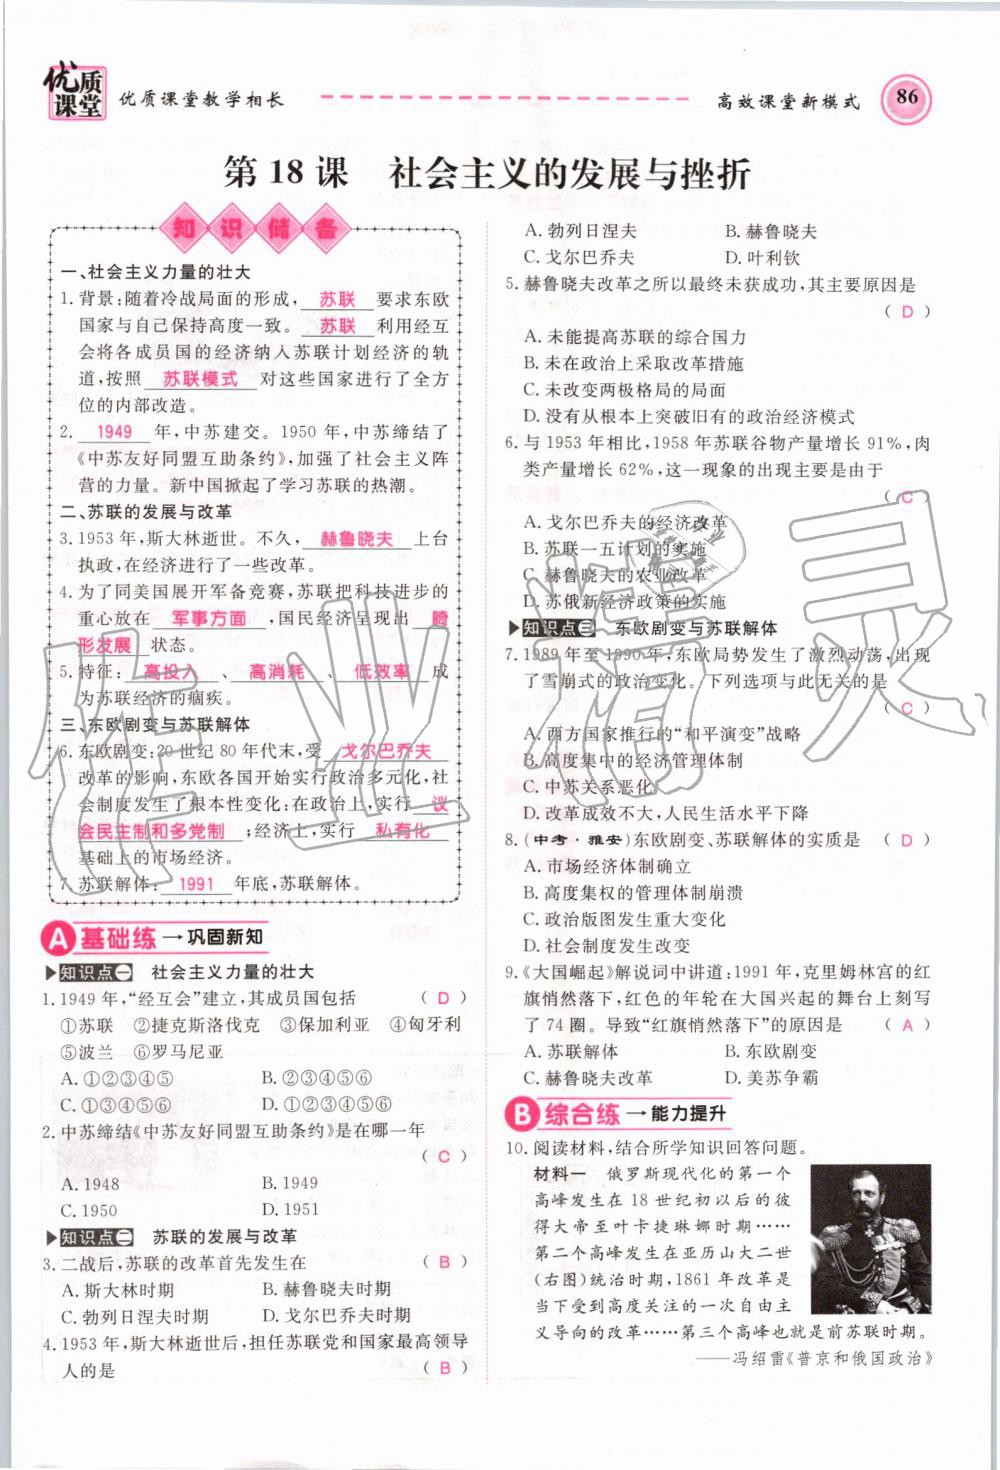 优质课堂
优质课堂教学相长
高效课堂新模式
86
第18课 社会主义的发展与挫折
知识储备
一、社会主义力量的壮大
1. 背景:随着冷战局面的形成, 苏联 要求东欧
国家与自己保持高度一致。 苏联 利用经互
会将各成员国的经济纳入苏联计划经济的轨
道,按照 苏联模式 对这些国家进行了全方
位的内部改造。
2. 1949 年,中苏建交。1950 年,中苏缔结了
《中苏友好同盟互助条约》,加强了社会主义阵
营的力量。新中国掀起了学习苏联的热潮。
二、苏联的发展与改革
3. 1953 年,斯大林逝世。不久, 赫鲁晓夫 上台
执政,在经济进行了一些改革。
4. 为了同美国展开军备竞赛,苏联把科技进步的
重心放在 军事方面 ,国民经济呈现出 畸
形发展 状态。
5. 特征: 高投入 、 高消耗 、 低效率 成
为苏联经济的痼疾。
三、东欧剧变与苏联解体
6. 东欧剧变:20 世纪 80 年代末,受 戈尔巴乔夫
改革的影响,东欧各国开始实行政治多元化,社
会制度发生了根本性变化:在政治上,实行 议
会民主制和多党制 ;经济上,实行 私有化
基础上的市场经济。
7. 苏联解体: 1991 年底,苏联解体。
A 基础练→巩固新知
知识点一 社会主义力量的壮大
1. 1949 年,“经互会”建立,其成员国包括 ( D )
①苏联 ②捷克斯洛伐克 ③保加利亚 ④匈牙利
⑤波兰 ⑥罗马尼亚
A. ①②③④⑤ B. ②③④⑤⑥
C. ①③④⑤⑥ D. ①②③④⑤⑥
2. 中苏缔结《中苏友好同盟互助条约》是在哪一年
( C )
A. 1948 B. 1949
C. 1950 D. 1951
知识点二 苏联的发展与改革
3. 二战后,苏联的改革首先发生在 ( B )
A. 斯大林时期 B. 赫鲁晓夫时期
C. 勃列日涅夫时期 D. 戈尔巴乔夫时期
4. 1953 年,斯大林逝世后,担任苏联党和国家最高领导
人的是 ( B )
A. 勃列日涅夫 B. 赫鲁晓夫
C. 戈尔巴乔夫 D. 叶利钦
5. 赫鲁晓夫改革之所以最终未获成功,其主要原因是
( D )
A. 未能提高苏联的综合国力
B. 未在政治上采取改革措施
C. 未改变两极格局的局面
D. 没有从根本上突破旧有的政治经济模式
6. 与 1953 年相比,1958 年苏联谷物产量增长 91%,肉
类产量增长 62%,这一现象的出现主要是由于
( C )
A. 戈尔巴乔夫的经济改革
B. 苏联一五计划的实施
C. 赫鲁晓夫的农业改革
D. 苏俄新经济政策的实施
知识点三 东欧剧变与苏联解体
7. 1989 年至 1990 年,东欧局势发生了激烈动荡,出现
了雪崩式的政治变化。下列选项与此无关的是
( C )
A. 西方国家推行的“和平演变”战略
B. 高度集中的经济管理体制
C. 中苏关系恶化
D. 改革成效不大,人民生活水平下降
8. (中考·雅安)东欧剧变、苏联解体的实质是 ( D )
A. 市场经济体制确立
B. 高度集权的管理体制崩溃
C. 政治版图发生重大变化
D. 社会制度发生改变
9. 《大国崛起》解说词中讲道:1991 年,克里姆林宫的红
旗悄然落下,红色的年轮在大国兴起的舞台上刻写
了 74 圈。导致“红旗悄然落下”的原因是 ( A )
A. 苏联解体 B. 东欧剧变
C. 赫鲁晓夫改革 D. 美苏争霸
B 综合练→能力提升
10. 阅读材料,结合所学知识回答问题。
材料一 俄罗斯现代化的第一个
高峰发生在 18 世纪初以后的彼
得大帝至叶卡捷琳娜时期……
第二个高峰发生在亚历山大二世
(右图)统治时期,1861 年改革是
当下受到高度关注的一次自由主
义导向的改革……第三个高峰也就是前苏联时期。
——冯绍雷《普京和俄国政治》
作业精灵